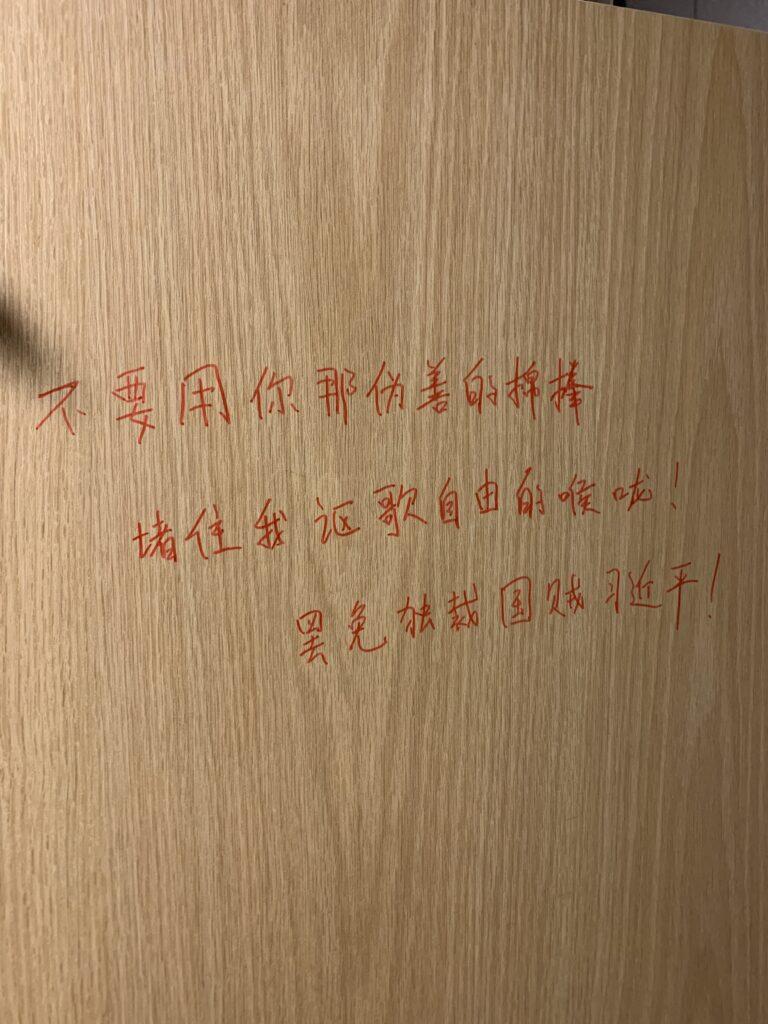 不要用你那伪善的棉棒
堵住我讴歌自由的喉咙！
罢免独裁国贼习近平！